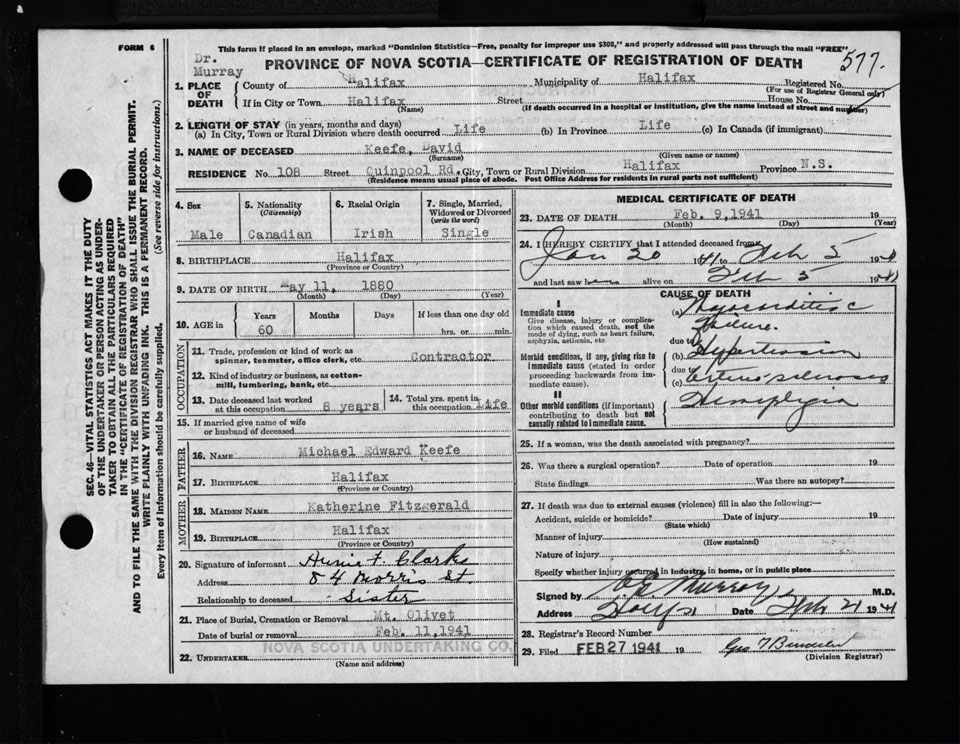 FORM 6
This form if placed in an envelope, marked "Dominion Statistics—Free, penalty for improper use $300," and properly addressed will pass through the mail "FREE"
Dr. Murray
PROVINCE OF NOVA SCOTIA—CERTIFICATE OF REGISTRATION OF DEATH
577.
1. PLACE OF DEATH
County of Halifax Municipality of Halifax Registered No.
(For use of Registrar General only)
If in City or Town Halifax Street House No.
(Name) (If death occurred in a hospital or institution, give the name instead of street and number)
2. LENGTH OF STAY (in years, months and days)
(a) In City, Town or Rural Division where death occurred Life (b) In Province Life (c) In Canada (if immigrant)
3. NAME OF DECEASED Keefe, David
(Surname) (Given name or names)
RESIDENCE No. 108 Street Quinpool Rd. City, Town or Rural Division Halifax Province N.S.
(Residence means usual place of abode. Post Office Address for residents in rural parts not sufficient)
4. Sex
Male
5. Nationality
(Citizenship)
Canadian
6. Racial Origin
Irish
7. Single, Married, Widowed or Divorced
(write the word)
Single
8. BIRTHPLACE Halifax
(Province or Country)
9. DATE OF BIRTH May 11, 1880
(Month) (Day) (Year)
10. AGE in
Years Months Days If less than one day old
60 hrs. or min.
OCCUPATION
11. Trade, profession or kind of work as spinner, teamster, office clerk, etc. Contractor
12. Kind of industry or business, as cotton-mill, lumbering, bank, etc.
13. Date deceased last worked at this occupation 8 years
14. Total yrs. spent in this occupation Life
15. If married give name of wife or husband of deceased
FATHER
16. NAME Michael Edward Keefe
17. BIRTHPLACE Halifax
(Province or Country)
MOTHER
18. MAIDEN NAME Katherine Fitzgerald
19. BIRTHPLACE Halifax
(Province or Country)
20. Signature of informant F. Clarke
Address 84 Morris St.
Relationship to deceased Sister
21. Place of Burial, Cremation or Removal Mt. Olivet
Date of burial or removal Feb. 11, 1941
NOVA SCOTIA UNDERTAKING CO.
22. UNDERTAKER
(Name and address)
MEDICAL CERTIFICATE OF DEATH
23. DATE OF DEATH Feb. 9, 1941 19
(Month) (Day) (Year)
24. I HEREBY CERTIFY that I attended deceased from
Jan 20 1941 to Feb 5 1941
and last saw h alive on Feb 5 1941
CAUSE OF DEATH
I
Immediate cause
Give disease, injury or complication which caused death, not the mode of dying, such as heart failure, asphyxia, asthenia, etc.
(a) Myocarditis c
Failure.
due to
Morbid conditions, if any, giving rise to immediate cause (stated in order proceeding backwards from immediate cause).
(b) Hypertension
due to
(c) Arterio sclerosis
II
Other morbid conditions (if important) contributing to death but not causally related to immediate cause.
Hemiplegia
25. If a woman, was the death associated with pregnancy?
26. Was there a surgical operation? Date of operation 19
State findings Was there an autopsy?
27. If death was due to external causes (violence) fill in also the following:—
Accident, suicide or homicide? Date of injury 19
(State which)
Manner of injury
(How sustained)
Nature of injury
Specify whether injury occurred in industry, in home, or in public place
Signed by Murray M.D.
Address Date Feb 21 1941
28. Registrar's Record Number
29. Filed FEB 27 1941 19 Geo
(Division Registrar)
SEC. 46—VITAL STATISTICS ACT MAKES IT THE DUTY
OF THE UNDERTAKER OR PERSON ACTING AS UNDER-
TAKER TO OBTAIN ALL THE PARTICULARS REQUIRED
IN THE "CERTIFICATE OF REGISTRATION OF DEATH"
AND TO FILE THE SAME WITH THE DIVISION REGISTRAR WHO SHALL ISSUE THE BURIAL PERMIT.
WRITE PLAINLY WITH UNFADING INK. THIS IS A PERMANENT RECORD.
Every item of information should be carefully supplied. (See reverse side for instructions.)